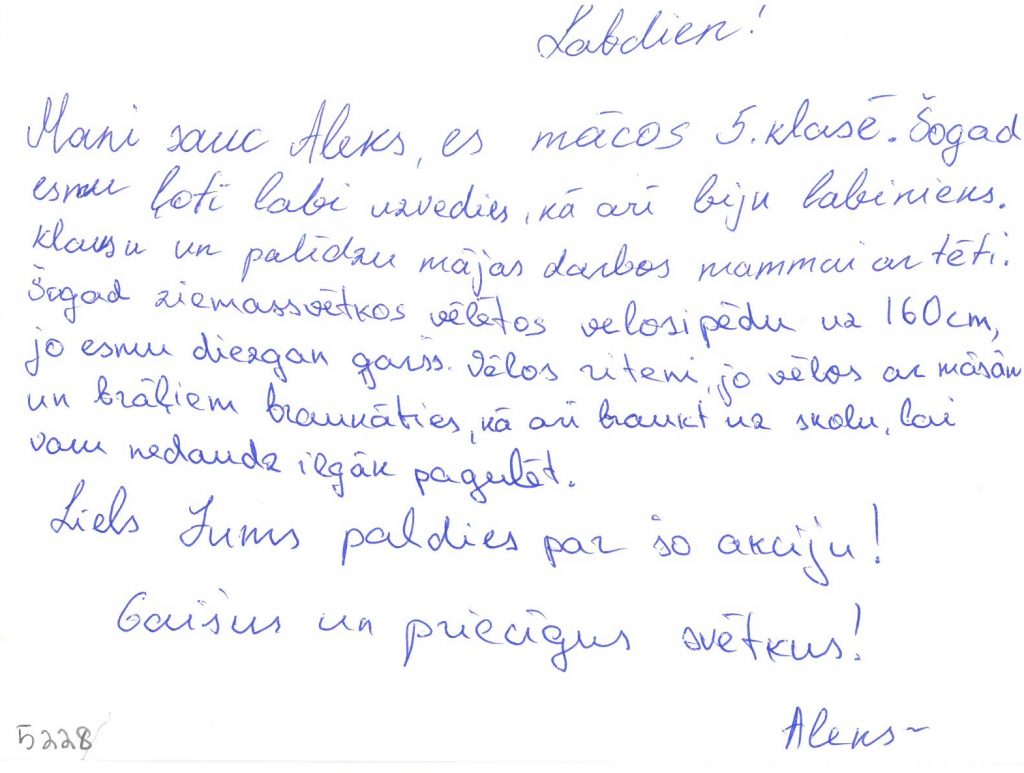 Labdien!
Mani sauc Aleks, es mācos 5. klasē. Šogad
esmu ļoti labi uzvedies, kā arī biju labinieks.
klausu un palīdzu mājas darbos mammai ar tēti.
Šogad ziemassvētkos vēlētos velosipēdu uz 160cm,
jo esmu diezgan garšs. Vēlos riteni, jo vēlos ar māsām
un brāļiem braukāties, kā arī braukt uz skolu, lai
varu nedaudz ilgāk pagulēt.
Liels Jums paldies par šo akciju!
Gaišus un priecīgus svētkus!
Aleks
5228